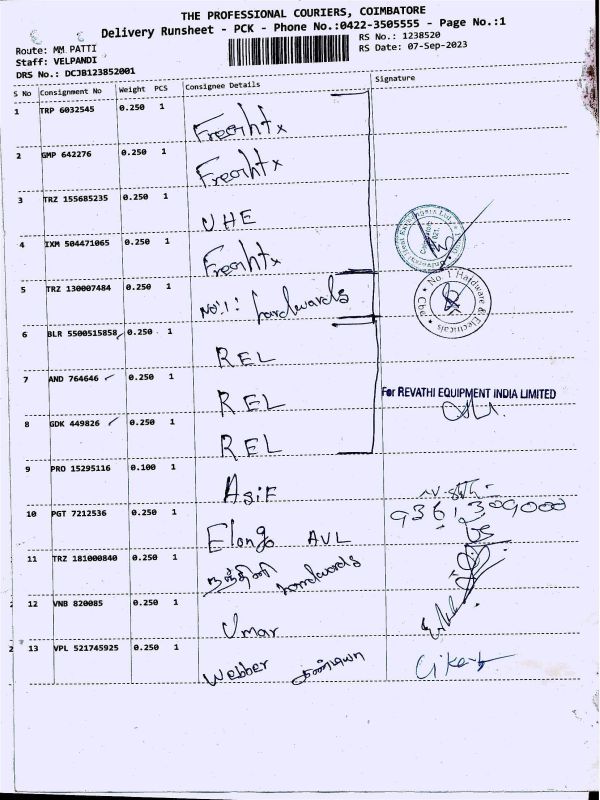 THE PROFESSIONAL COURIERS, COIMBATORE
Delivery Runsheet - PCK - Phone No.:0422-3505555 - Page No.:1
Route: MM PATTI
RS No.: 1238520
Staff: VELPANDI
RS Date: 07-Sep-2023
DRS No.: DCJB123852001
S No Consignment No Weight PCS Consignee Details Signature
1 TRP 6032545 0.250 1
2 GMP 642276 0.250 1
3 TRZ 155685235 0.250 1 UHE
4 IXM 504471065 0.250 1
5 TRZ 130007484 0.250 1 No:1: hardwards
No. 1 Hardware & Electricals Cbe
6 BLR 5500515858 0.250 1 REL
7 AND 764646 0.250 1 REL
For REVATHI EQUIPMENT INDIA LIMITED
8 GDK 449826 0.250 1 REL
9 PRO 15295116 0.100 1 Asif
10 PGT 7212536 0.250 1 Elango AVL
9361309000
11 TRZ 181000840 0.250 1 நந்தினி hardwards
12 VNB 820085 0.250 1 Umar
13 VPL 521745925 0.250 1 Webber